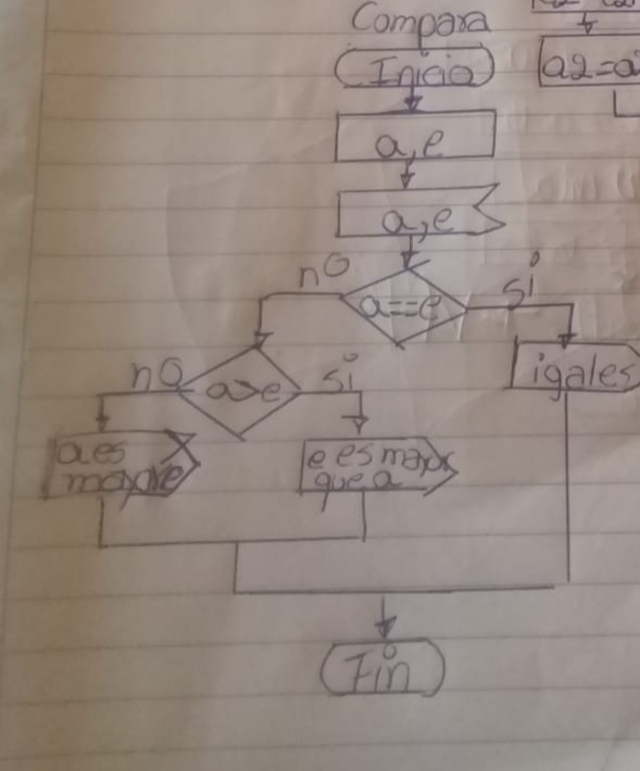 Compara
Inicio
a2=a
a,e
a,e
no
si
a==e
igales
no
si
a>e
a es
mayor e
e es mayor
que a
Fin